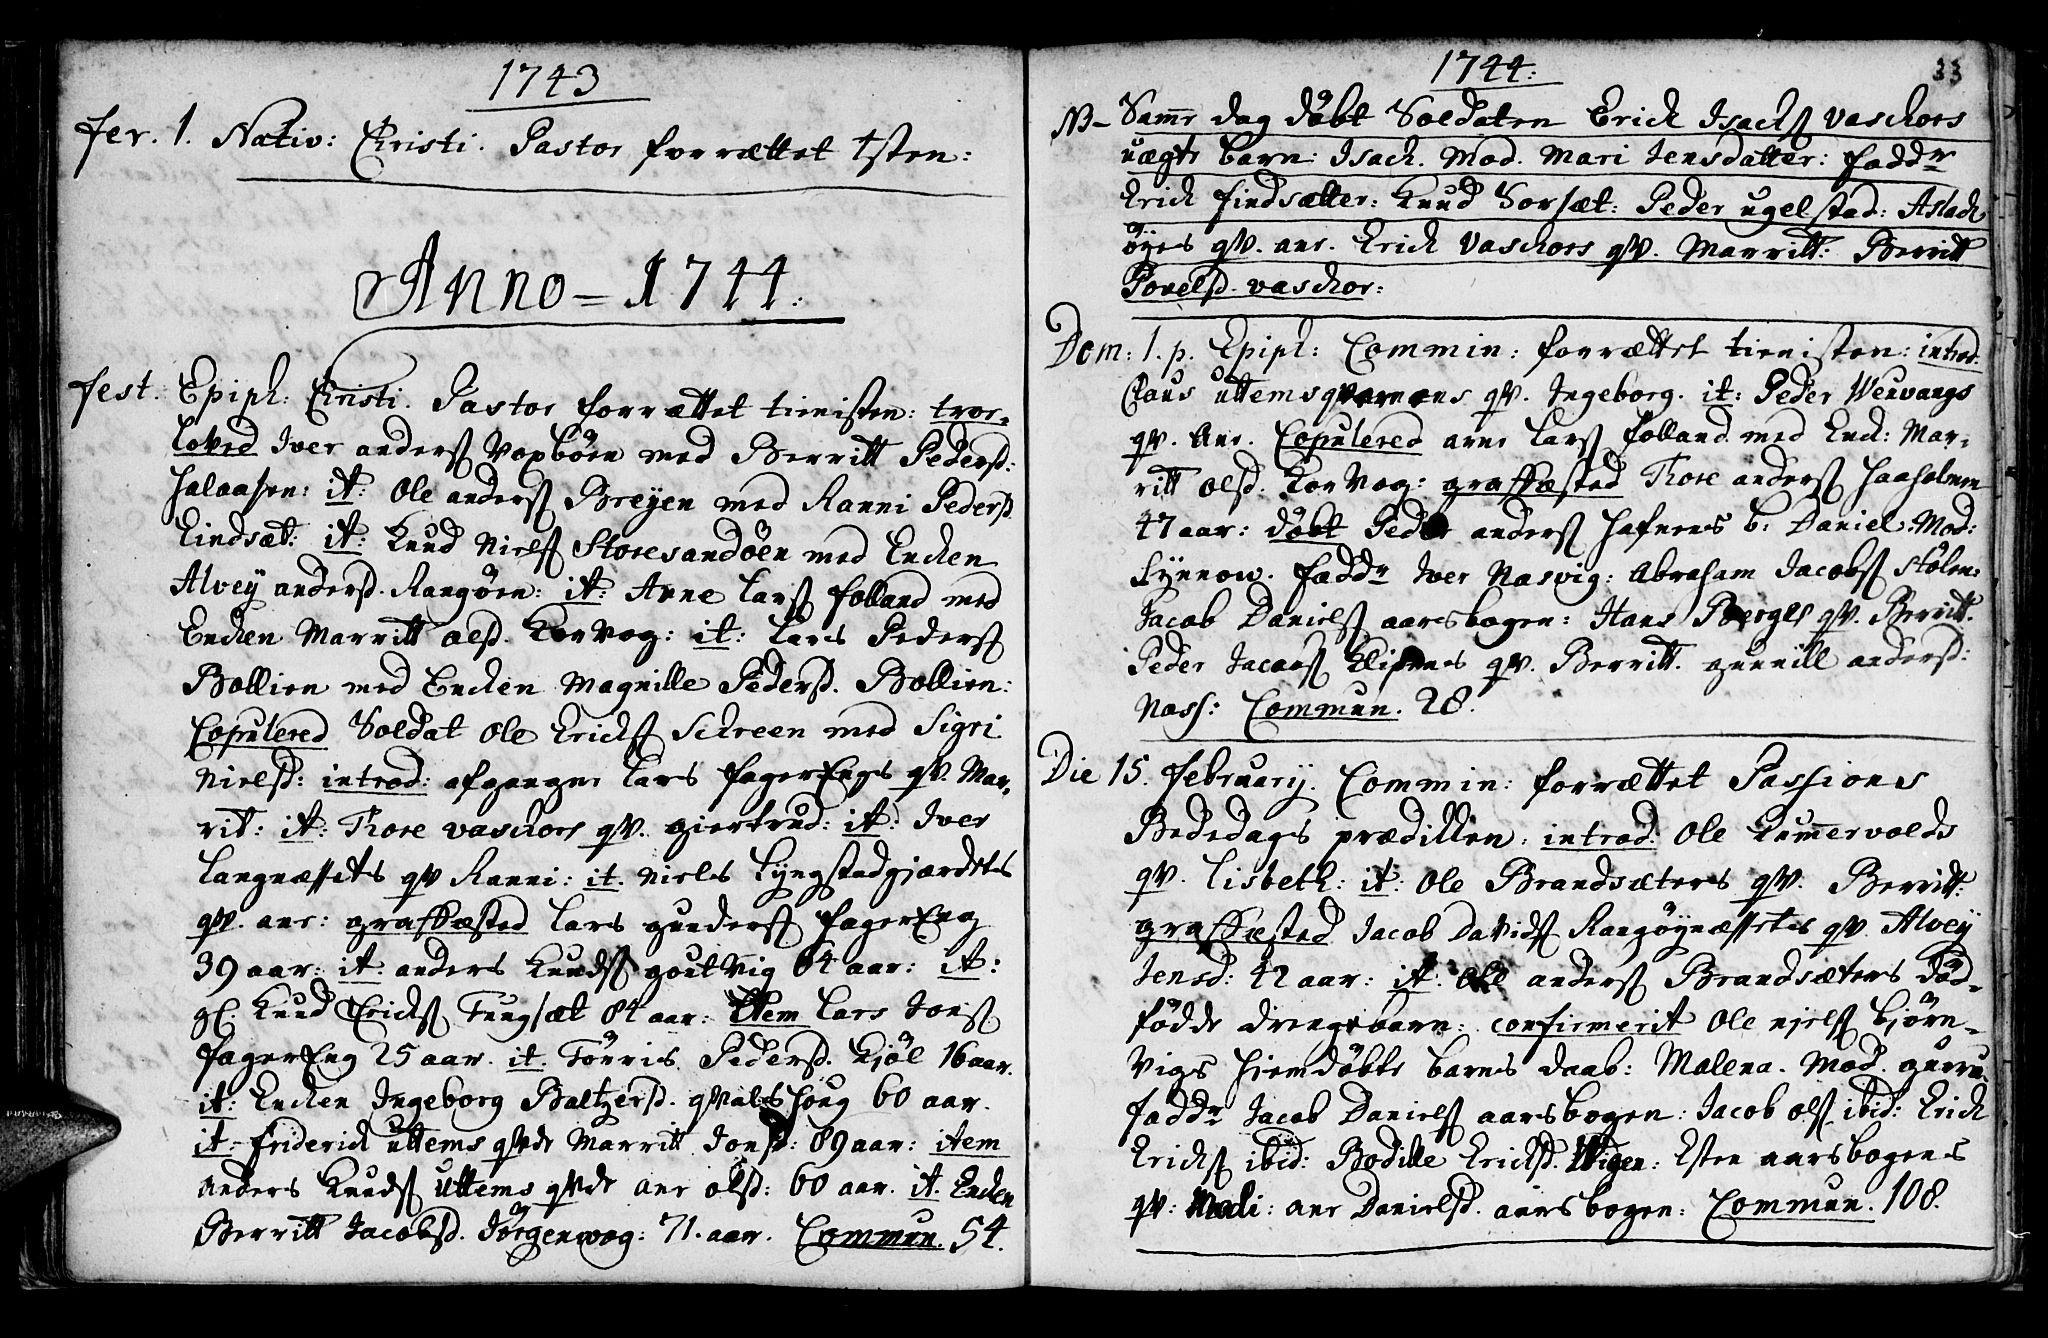 1743
fer. 1. Nativ: Christi. Pastor forrættet tsten:
Anno = 1744.
fest. Epiph: Christi. Pastor forrættet tienisten: troe-
loved Iver anderss Voxböen med Berritt Pedersd:
halaasen: it: Ole anderss Breÿen med Ranni Pedersd
Lindsæt: it: Knud Nielss Storesandöen med Encken
Alveÿ andersd. Rangöen: it: Arne Larss folland med
Encken Marritt olsd. Korvog: it: Lars Pederss
Bollien med Encken Magnille Pedersd. Bollien:
Copulered Soldat Ole Erickss Schreen med Sigri
Nielsd: introd: afgangne Lars fagerEngs qv. Mar-
rit: it: Thore vaschors qv. giertrud: it: Iver
Langnæssets qv Ranni: it. Niels Lÿngstadgjærdets
qv. ane: graffæsted Lars gunderss fagerEng
39 aar: it: anders Knudss goutvig 64 aar: it:
gl. Knud Erickss Tungsæt 84 aar: Item Lars Jonss
fagerEng 25 aar. it. Tönris Pedersd. Kjöl 16 aar.
it: Encken Ingeborg Baltzersd. qvalshoug 60 aar.
it: friderich uttems qvde Marritt Jonsd: 89 aar: item
anders Knudss uttems qvde ane olsd: 60 aar. it. Encken
Berritt Jacobsd. Jörgenvog: 71. aar. Commun. 54.
1744. 33
NB- Samme dag döbt Soldaten Erich Isachss vaschors
uægte barn: Isach. Mod. Mari Jensdatter: faddr
Erich findsætter: Knud Sorsæt: Peder ugelstad: Aslach
öÿes qv. ane. Erich vaschors qv. Marritt: Berritt
Povelsd. vaschor:
Dom: 1. p. Epiph: Commin: forrættet tienisten: introd.
Claus uttemsqvernens qv. Ingeborg. it: Peder Wevangs
qv. Ane. Copulered arne Larss folland med Enck: Mar-
ritt olsd. Korvog: graffæsted Thore anderss haaholmen
47 aar: döbt Peder anderss hafnens b: Daniel Mod:
Lÿnnow. faddr Iver Nasvig: Abraham Jacobss Stölen:
Jacob Danielss aarsbogen: Hans Berges qv. Berritt.
Peder Jacobss Klipenes qv. Berritt. gunnill andersd:
Nass: Commun. 28.
Die 15. februarÿ. Commin: forrættet Passions
Bededags prædicken: introd: Ole Kummervolds
qv. Lisbeth: it: Ole Brandsæters qv. Berritt:
graffæsted Jacob Davidss Rangöÿnæssets qv Alveÿ
Jensd: 42 aar: it: Ole anderss Brandsæters död-
födde drengebarn: confirmerit Ole njelss Björn-
vigs hiemdöbte barns daab: Malena. Mod. gurru.
faddr Jacob Danielss aarsbogen: Jacob olss ibid: Erich
Erickss ibid: Bodille Ericksd. Wigen: Esten aarsbogens
qv: Madi: ane Danielsd. aarsbogen: Commun. 108.